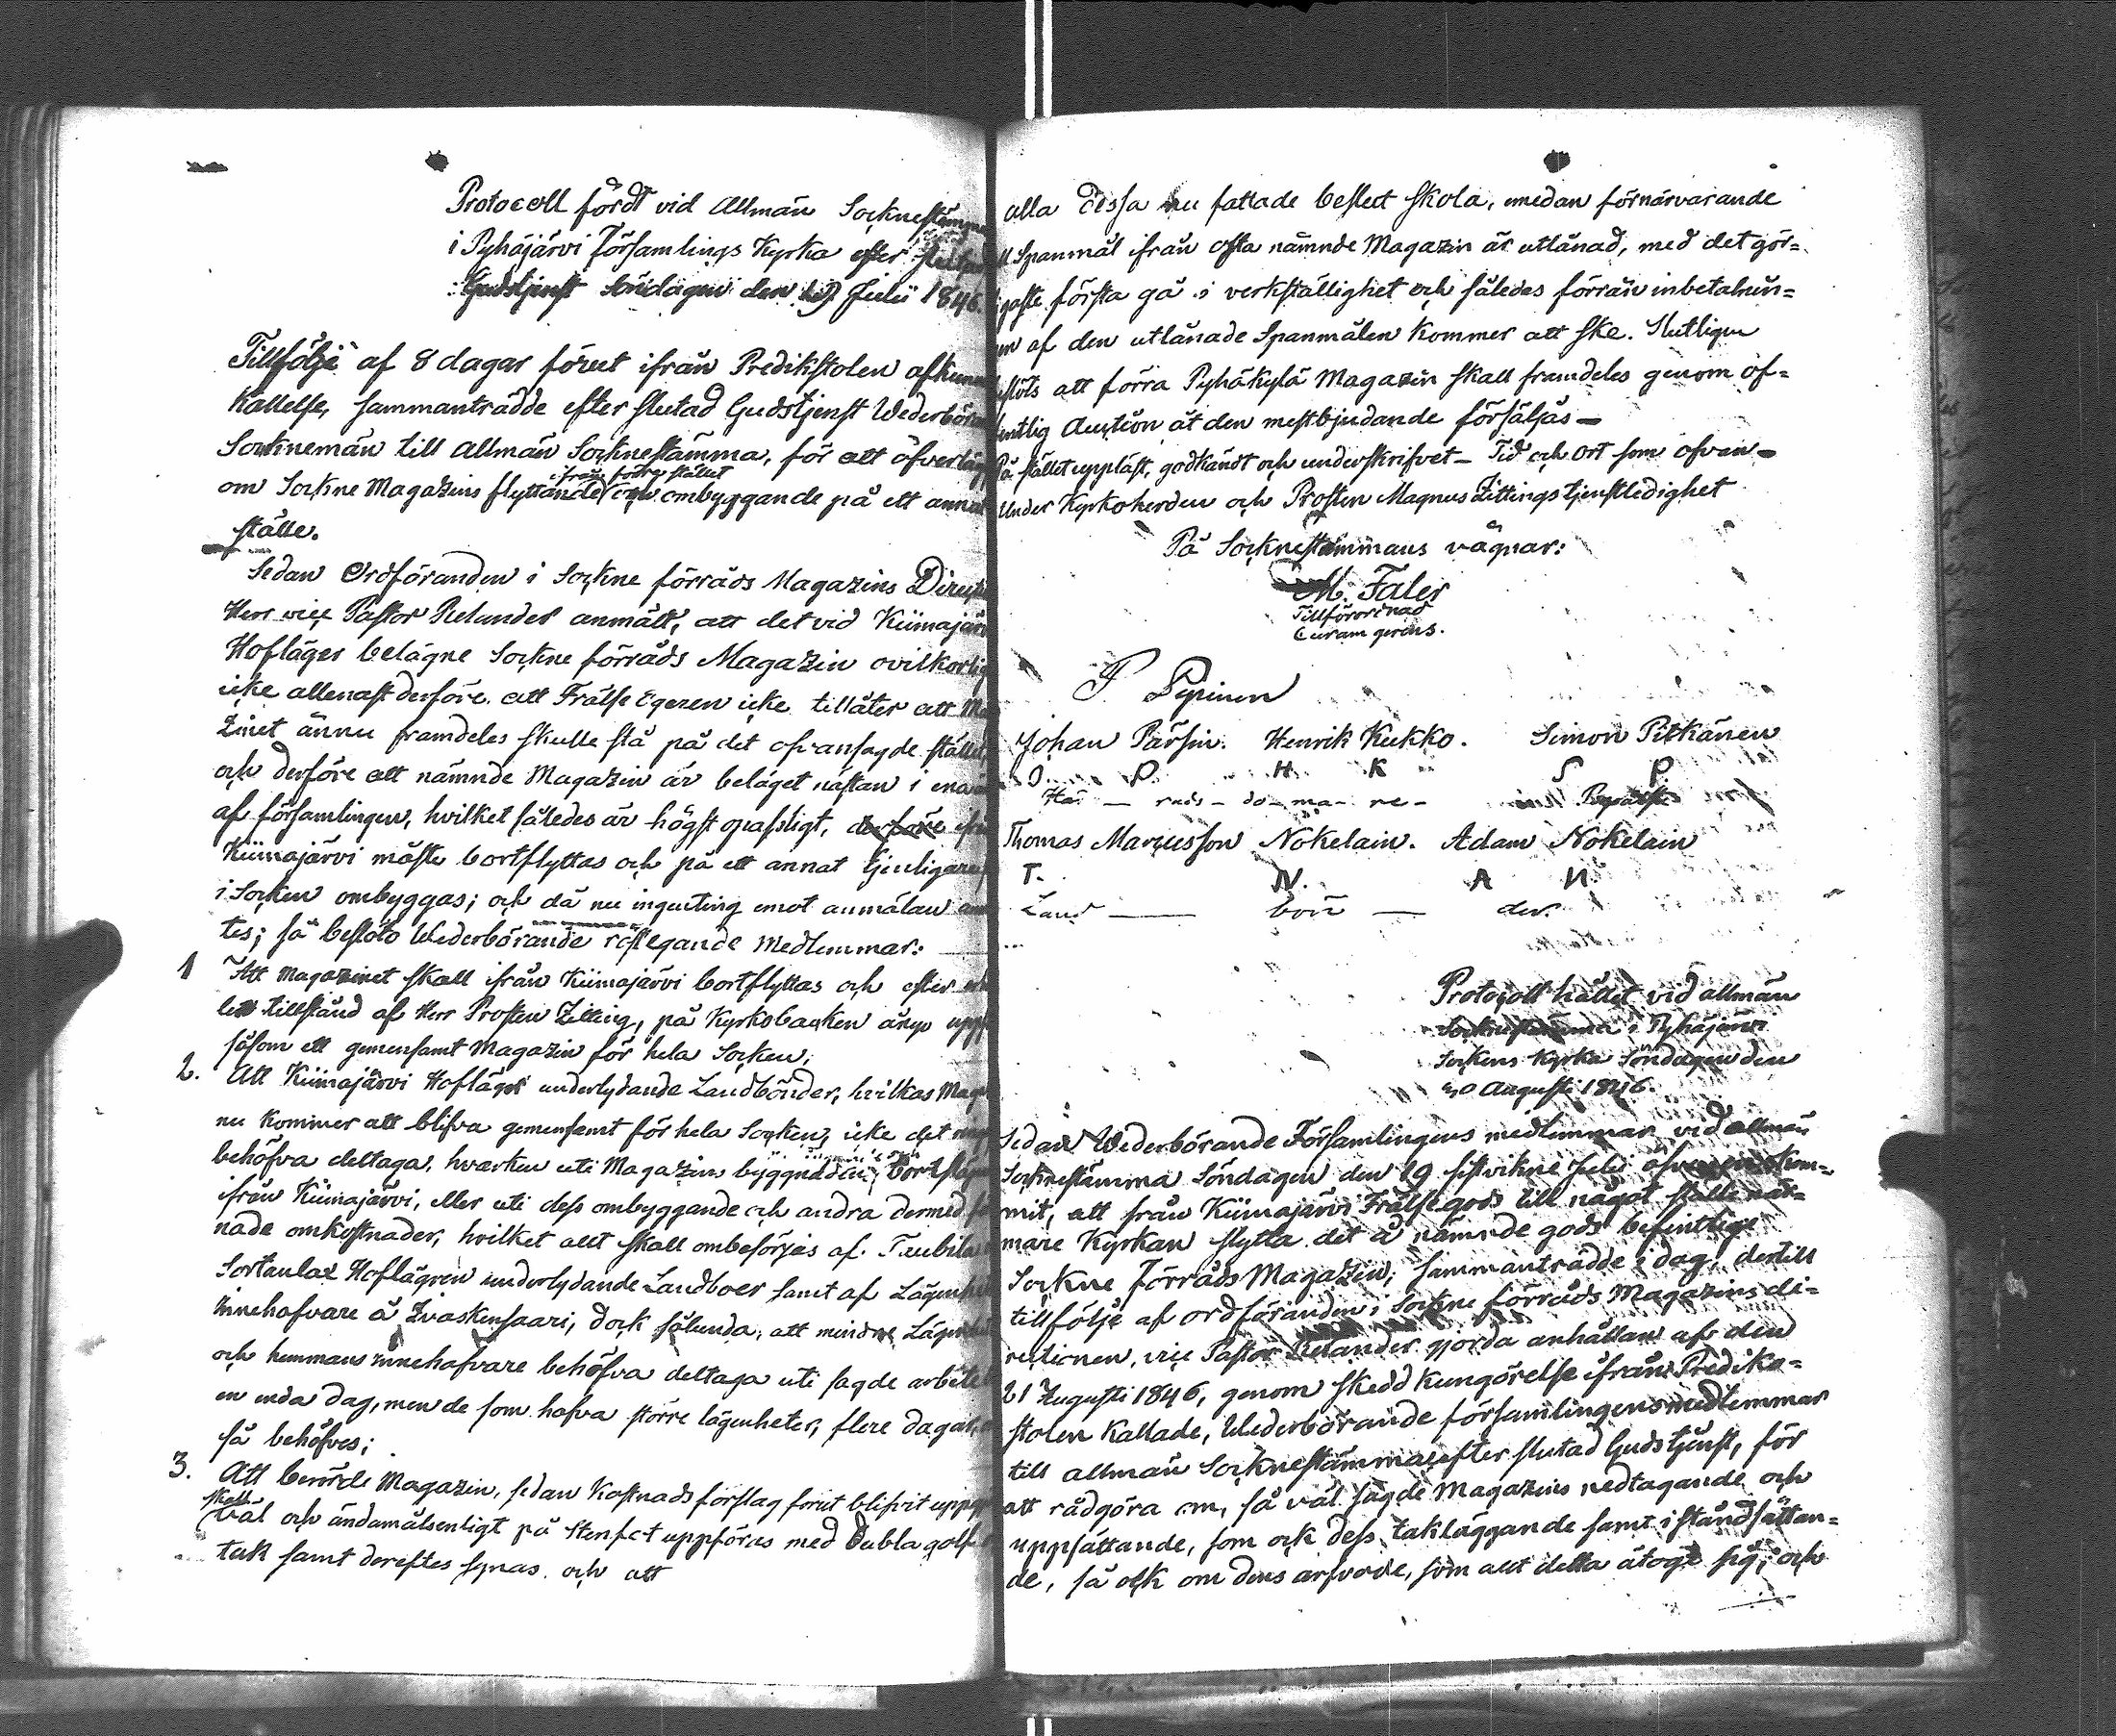 Protocoll fördt vid Allmän Sockneſtämma
i Pyhäjärvi Förſamlings Kyrka efter
Gudstjenſt Söndagen den 19 Julii 1846.
Tillfölje af 8 dagar förut ifrån Predikſtolen afkun
Kallelſe, ſammanträdde efter ſlutad Gudstjenſt Wederbör
Socknemän till Allmän Sockneſtämma, för att öfverläg
ifrån förra ſtället
om Sockne Magazins flyttande och ombyggande på ett annat
ſtälle.
Sedan Ordföranden i Sockne förråds Magazins Direct
Herr vice Paſtor Relander anmält, att det vid Kiimajär
Hofläger belägne Sockne förråds Magazin ovilkorlig
icke allenaſt derföre att Frälſe Egaren icke tillåter att Ma
zinet ännu framdeles ſkulle ſtå på det ofvanſagde ſtället,
och derföre att nämnde Magazin är beläget näſtan i ena
af förſamlingen, hvilket ſåledes är högſt opaſsligt, derföre ifrån
Kiimajärvi måſte bortflyttas och på ett annat tjenligare
i Socken ombyggas; och då nu ingenting emot anmälan an
tes; ſå beſlöto Wederbörande röſtegande Medlemmar:
1 Att Magazinet ſkall ifrån Kiimajärvi bortflyttas och efter
tillſtånd af Herr Proſten Zitting, på Kyrkobacken å nyo upp
ſåſom ett gemenſamt Magazin för hela Socken;
2. Att Kiimajärvi Hofläger underlydande Landbönder, hvilkas Mag
nu kommer att blifva gemenſamt för hela Socken, icke det
behöfva deltaga, hvarken uti Magazins byggnaden, bortfly
ifrån Kiimajärvi, eller uti deſs ombyggande och andra dermed
nade omkoſtnader, hvilket allt ſkall ombeſörjas af Taubila
Sortanlax Hoflägren underlydande Landboer ſamt af Lägenh
Innehafvare å Ivaskenſaari, dock ſålunda, att mindre Lägenh
och hemmans innehafvare behöfva deltaga uti ſagde arbete
en enda dag, men de ſom hafva större lägenheter, flere dagar,
ſå behöfves;
3. Att berörde Magazin, ſedan Koſtnads förſlag förut blifvit uppg
ſkall
väl och ändamålsenligt på Stenfot uppföras med dubla golf
tak ſamt derefter ſynas och att
alla deſſa nu fattade beſlut ſkola, medan förnärvarande
Spanmål ifrån ofta nämnde Magazin är utlånad, med det gör-
ligaſte förſta gå i verkſtällighet och ſåledes förrän inbetalnin-
af den utlånade Spanmålen kommer att ſke. Slutligen
att förra Pyhäkylä Magazin ſkall framdeles genom of-
fentlig Auction åt den meſtbjudande förſäljas –
På ſtället uppläſt, godkändt och underſkrifvet – Tid och Ort ſom ofvan –
Under Kyrkoherden och Proſten Magnus Zittings tjenſtledighet
På Sockneſtämmans vägnar:
M. Faler
Tillförordnad
Curam gerens.
P Pypinen
Johan Pärſin. Henrik Kukko. Simon Pitkänen
J. P. H. K S P.
Hä – rads – do – ma – re –
Thomas Marcusſon Nokelain. Adam Nokelain
T. N. A N
Land – bön – der.
Protocoll hållet vid allmän
Sockneſtämma i Pyhäjärvi
Sockens Kyrka Söndagen den
30 Auguſti 1846.
Sedan Wederbörande Förſamlingens medlemmar vid allmän
Sockneſtämma Söndagen den 19 ſiſtvikne Julii öfverenskom-
mit, att från Kiimajärvi Frälſegods till något ſtälle när-
mare Kyrkan flytta det å nämnde gods befintliga
Sockne Förråds Magazin; ſammanträdde i dag, dertill
tillfölje af ordföranden i Sockne förråds Magazins di-
rectionen, vice Paſtor Relander gjorda anhållan af den
21 Auguſti 1846, genom ſkedd kungörelſe ifrån Prediko-
ſtolen Kallade, Wederbörande förſamlingens medlemmar
till allmän Sockneſtämma efter ſlutad Gudstjenſt, för
att rådgöra om, ſå väl ſagde Magazins nedtagande och
uppſättande, ſom ock deſs takläggande ſamt i ſtåndſättan-
de, ſå ock om dens arfvode, ſom allt detta åtoge ſig, och